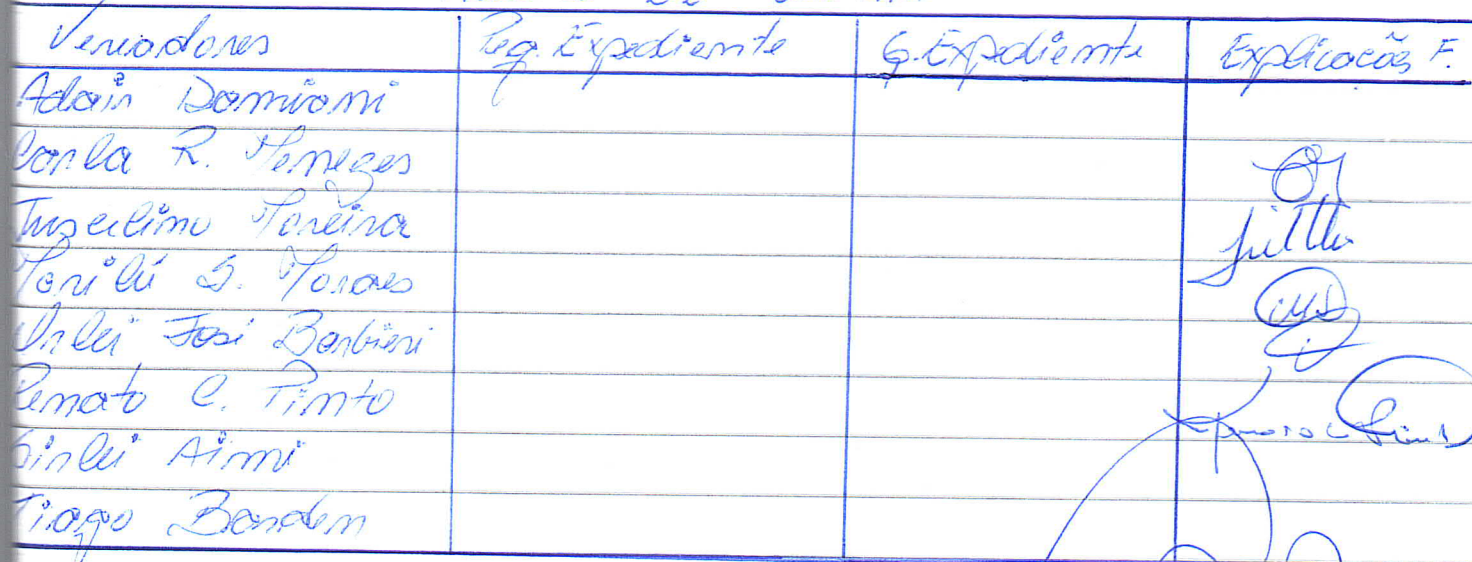 Vereadores Peq. Expediente G. Expediente Explicacões F.
Adair Damiani
Carla R. Menezes
Juscelino Moreira
Marilú S. Moraes
Orlei José Barbieri
Renato C. Pinto
Sirlei Aimi
Tiago Bardem